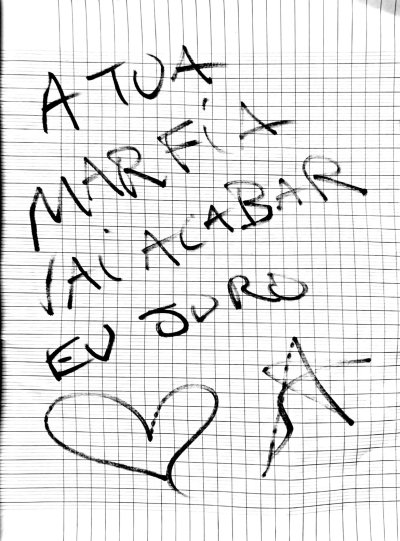 A TUA
MARFiA
VAi ACABAR
EU JURO
A